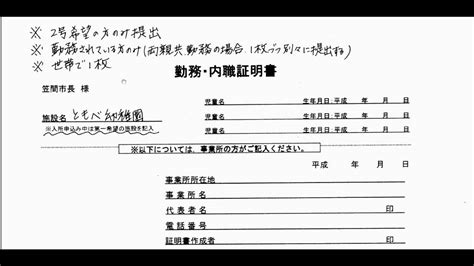 ※ 2号希望の方のみ提出
※ 勤務されている方のみ(両親共、勤務の場合、1枚づつ別々に提出する)
※ 世帯で1枚
勤務・内職証明書
笠間市長 様
児童名 生年月日:平成 年 月 日
施設名 ともべ幼稚園 児童名 生年月日:平成 年 月 日
※入所申込み中は第一希望の施設を記入 児童名 生年月日:平成 年 月 日
※以下については、事業所の方がご記入ください。
平成 年 月 日
事業所所在地
事業所名
代表者名 印
電話番号
証明書作成者 印